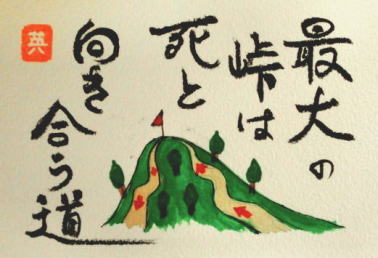 最大の
峠は
死と
向き
合う道
英